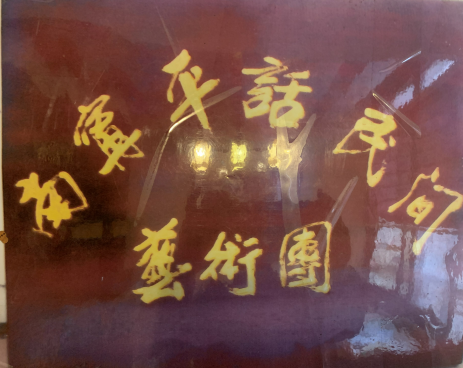 南寧平話民間
藝術團